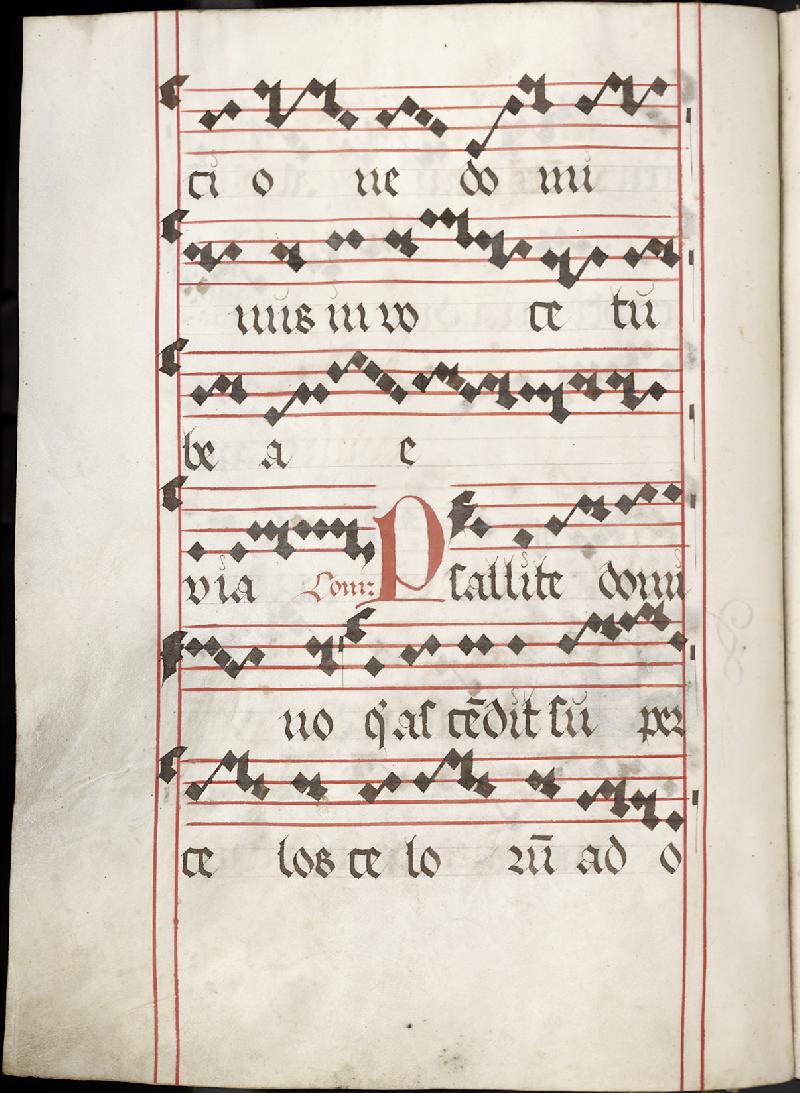 ci o ne do mi
nus in vo ce tu
be a e
via Com: Psallite domi
no q̓ as cēdit su per
ce los ce lo rū ad o